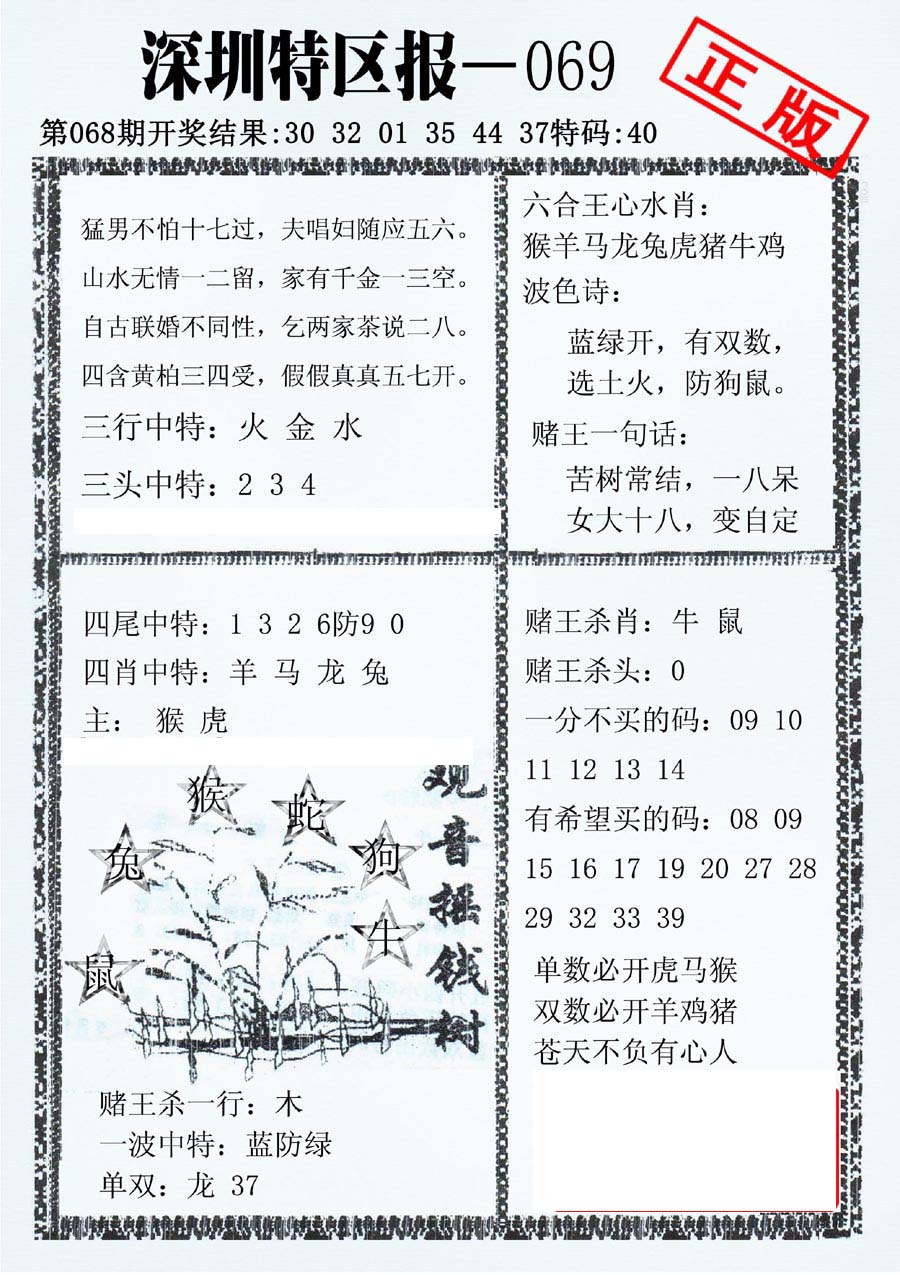 深圳特区报—069
正版
第068期开奖结果:30 32 01 35 44 37特码:40
猛男不怕十七过，夫唱妇随应五六。
山水无情一二留，家有千金一三空。
自古联婚不同性，乞两家茶说二八。
四含黄柏三四受，假假真真五七开。
三行中特：火 金 水
三头中特：2 3 4
六合王心水肖：
猴羊马龙兔虎猪牛鸡
波色诗：
蓝绿开，有双数，
选土火，防狗鼠。
赌王一句话：
苦树常结，一八呆
女大十八，变自定
四尾中特：1 3 2 6防9 0
四肖中特：羊 马 龙 兔
主： 猴 虎
猴
蛇
兔
狗
牛
鼠
观音摇钱树
赌王杀一行：木
一波中特：蓝防绿
单双：龙 37
赌王杀肖：牛 鼠
赌王杀头：0
一分不买的码：09 10
11 12 13 14
有希望买的码：08 09
15 16 17 19 20 27 28
29 32 33 39
单数必开虎马猴
双数必开羊鸡猪
苍天不负有心人